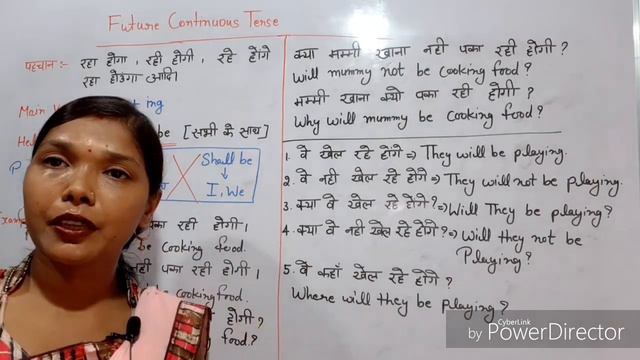 Future Continuous Tense
पहचान :- रहा होगा, रही होगी, रहे होंगे
रहा होऊंगा आदि।
Main
ing
be [सभी के साथ]
Shall be
↓
I, We
पका रही होगी।
be cooking food.
नहीं पका रही होगी।
be cooking food.
होगी ?
food?
क्या मम्मी खाना नही पका रही होगी ?
Will mummy not be cooking food?
मम्मी खाना क्यो पका रही होगी ?
Why will mummy be cooking food?
1. वे खेल रहे होंगे ⇒ They will be playing.
2. वे नही खेल रहे होंगे ⇒ They will not be playing.
3. क्या वे खेल रहे होंगे? ⇒ Will They be playing?
4. क्या वे नही खेल रहे होंगे? ⇒ Will they not be
Playing?
5. वे कहाँ खेल रहे होंगे ?
Where will they be playing?
CyberLink
by PowerDirector